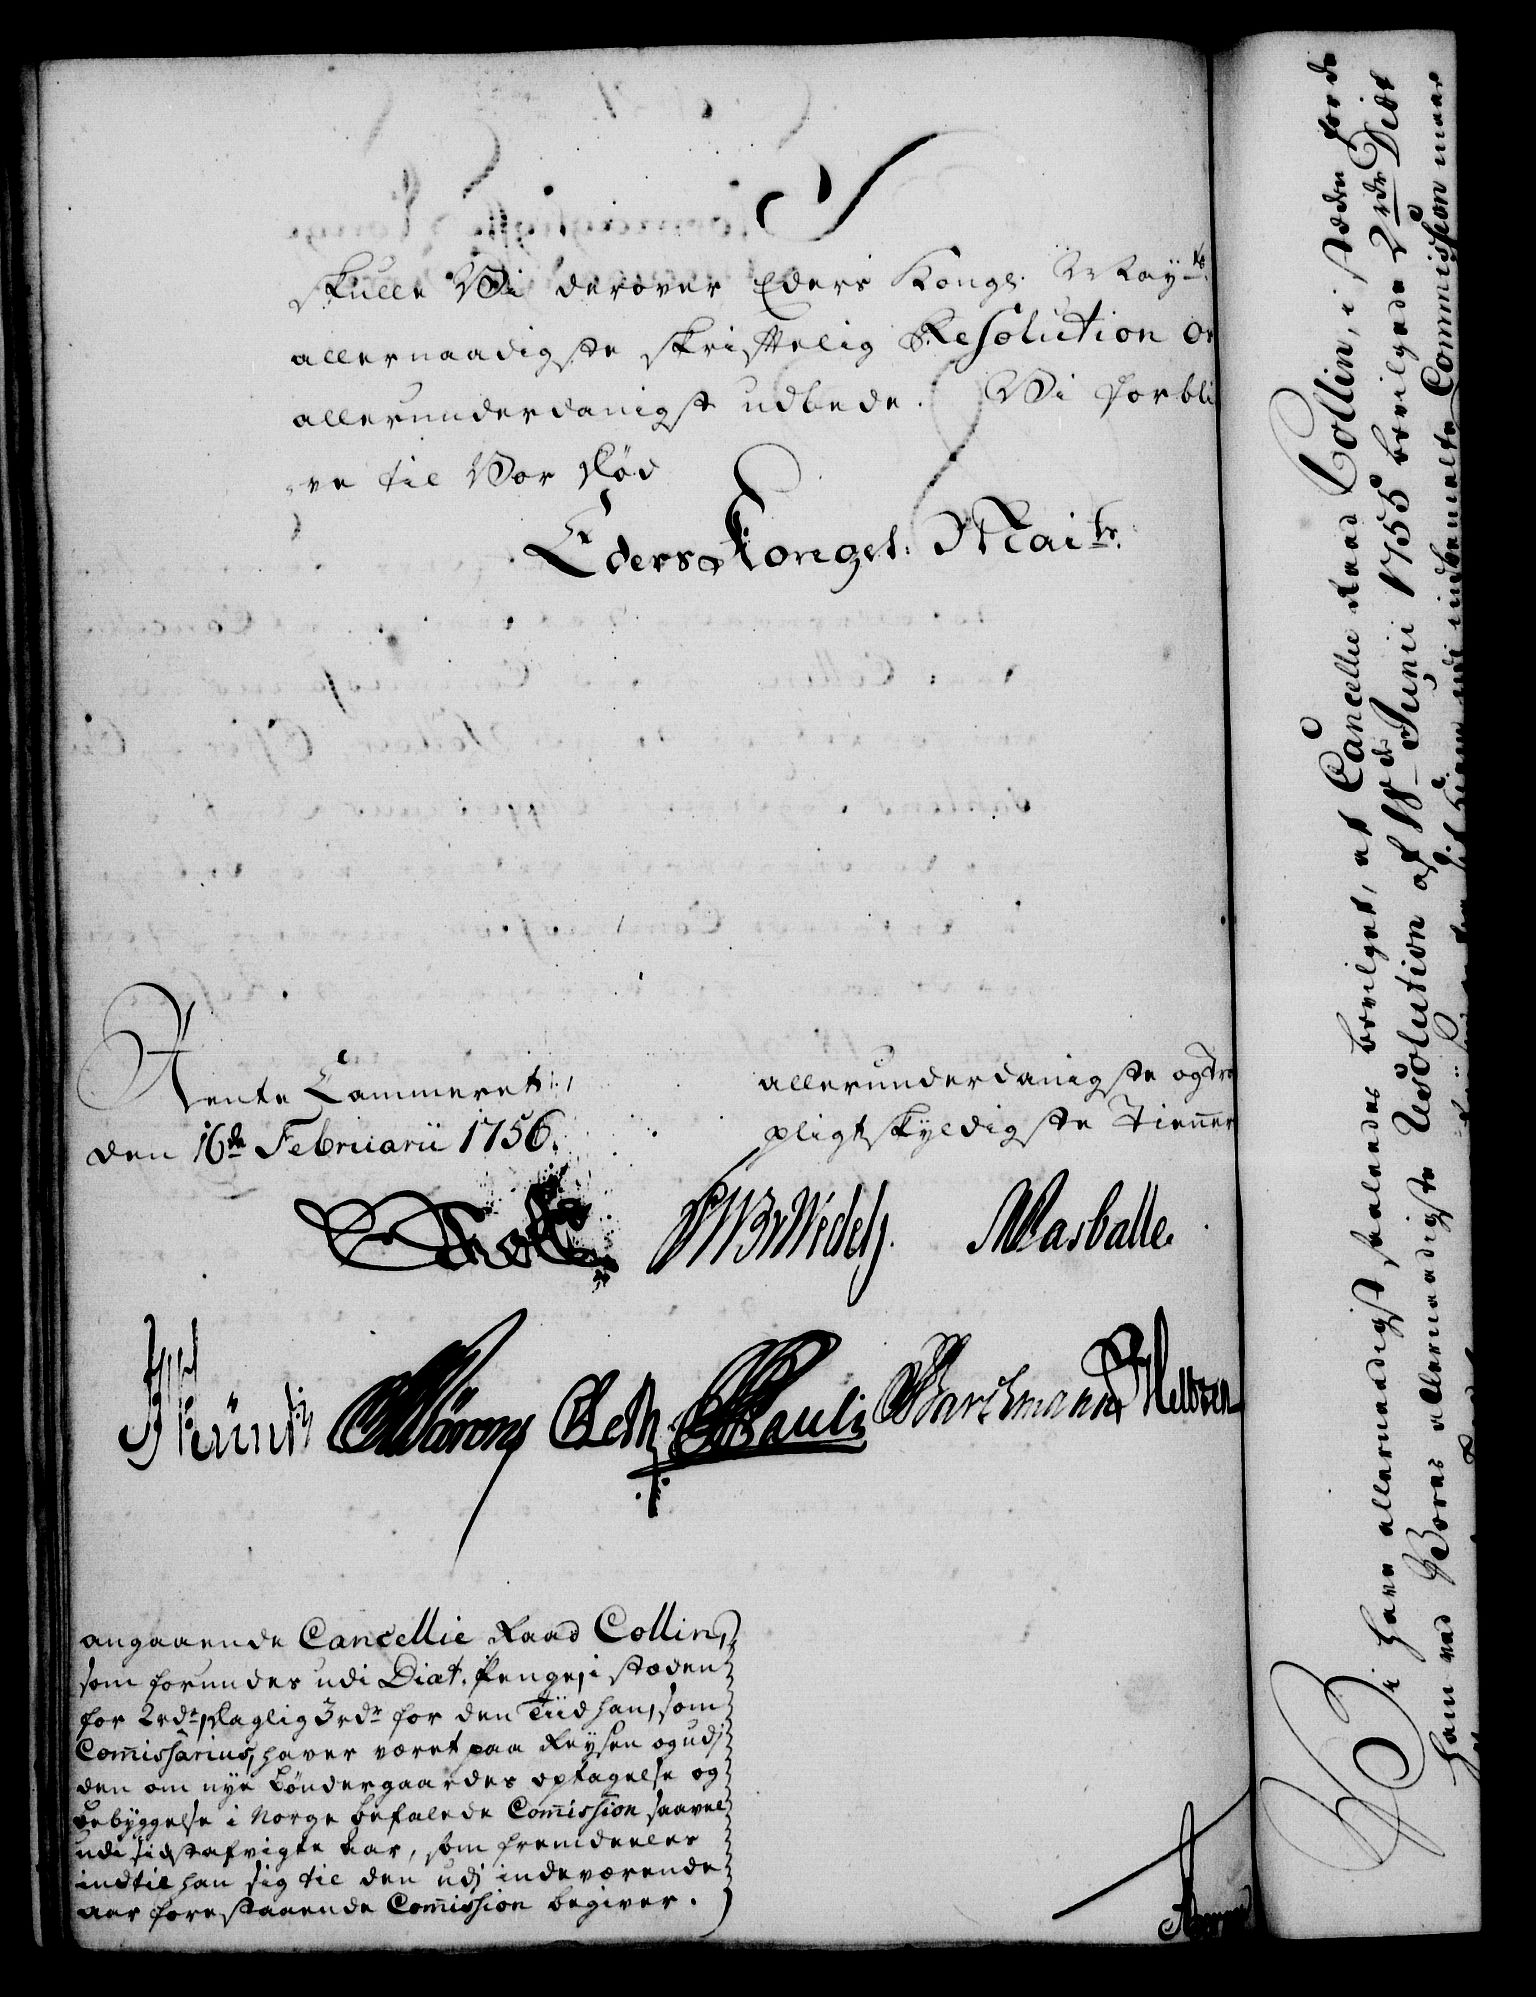 skulle Wi derover Eders Kongl: May:ts
allernaadigste skriftelig Resolution
allerunderdanigst udbede. Wi forbli
ve til Vor Død
Eders Kongel: Maits.
Rente Cammeret
den 16de Februarii 1756.
allerunderdanigste og tro
pligtskyldigste Tienner
Holst
Wedel
Masballe.
angaaende Cancellie Raad Collin,
som forundes udi Diæt. Penge, i stæden
for 2rdr, daglig 3rdr for den Tiid han, som
Comissarius, haver været paa Reysen og udj
den om nye Bøndergaardes optagelse og
bebyggelse i Norge befalede Comission saavel
udi sidstafvigte aar, som fremdeeles
indtil han sig til den udj indeværende
aar forestaaende Comission begiver.
Wi have allernaadigst saaledes bevilget, at Cancellie Raad Collin, i stæden for de
ham ved Vores allernaadigste Resolution af Junii 1755 bevilgede 2rdr Diæt
Commission maae